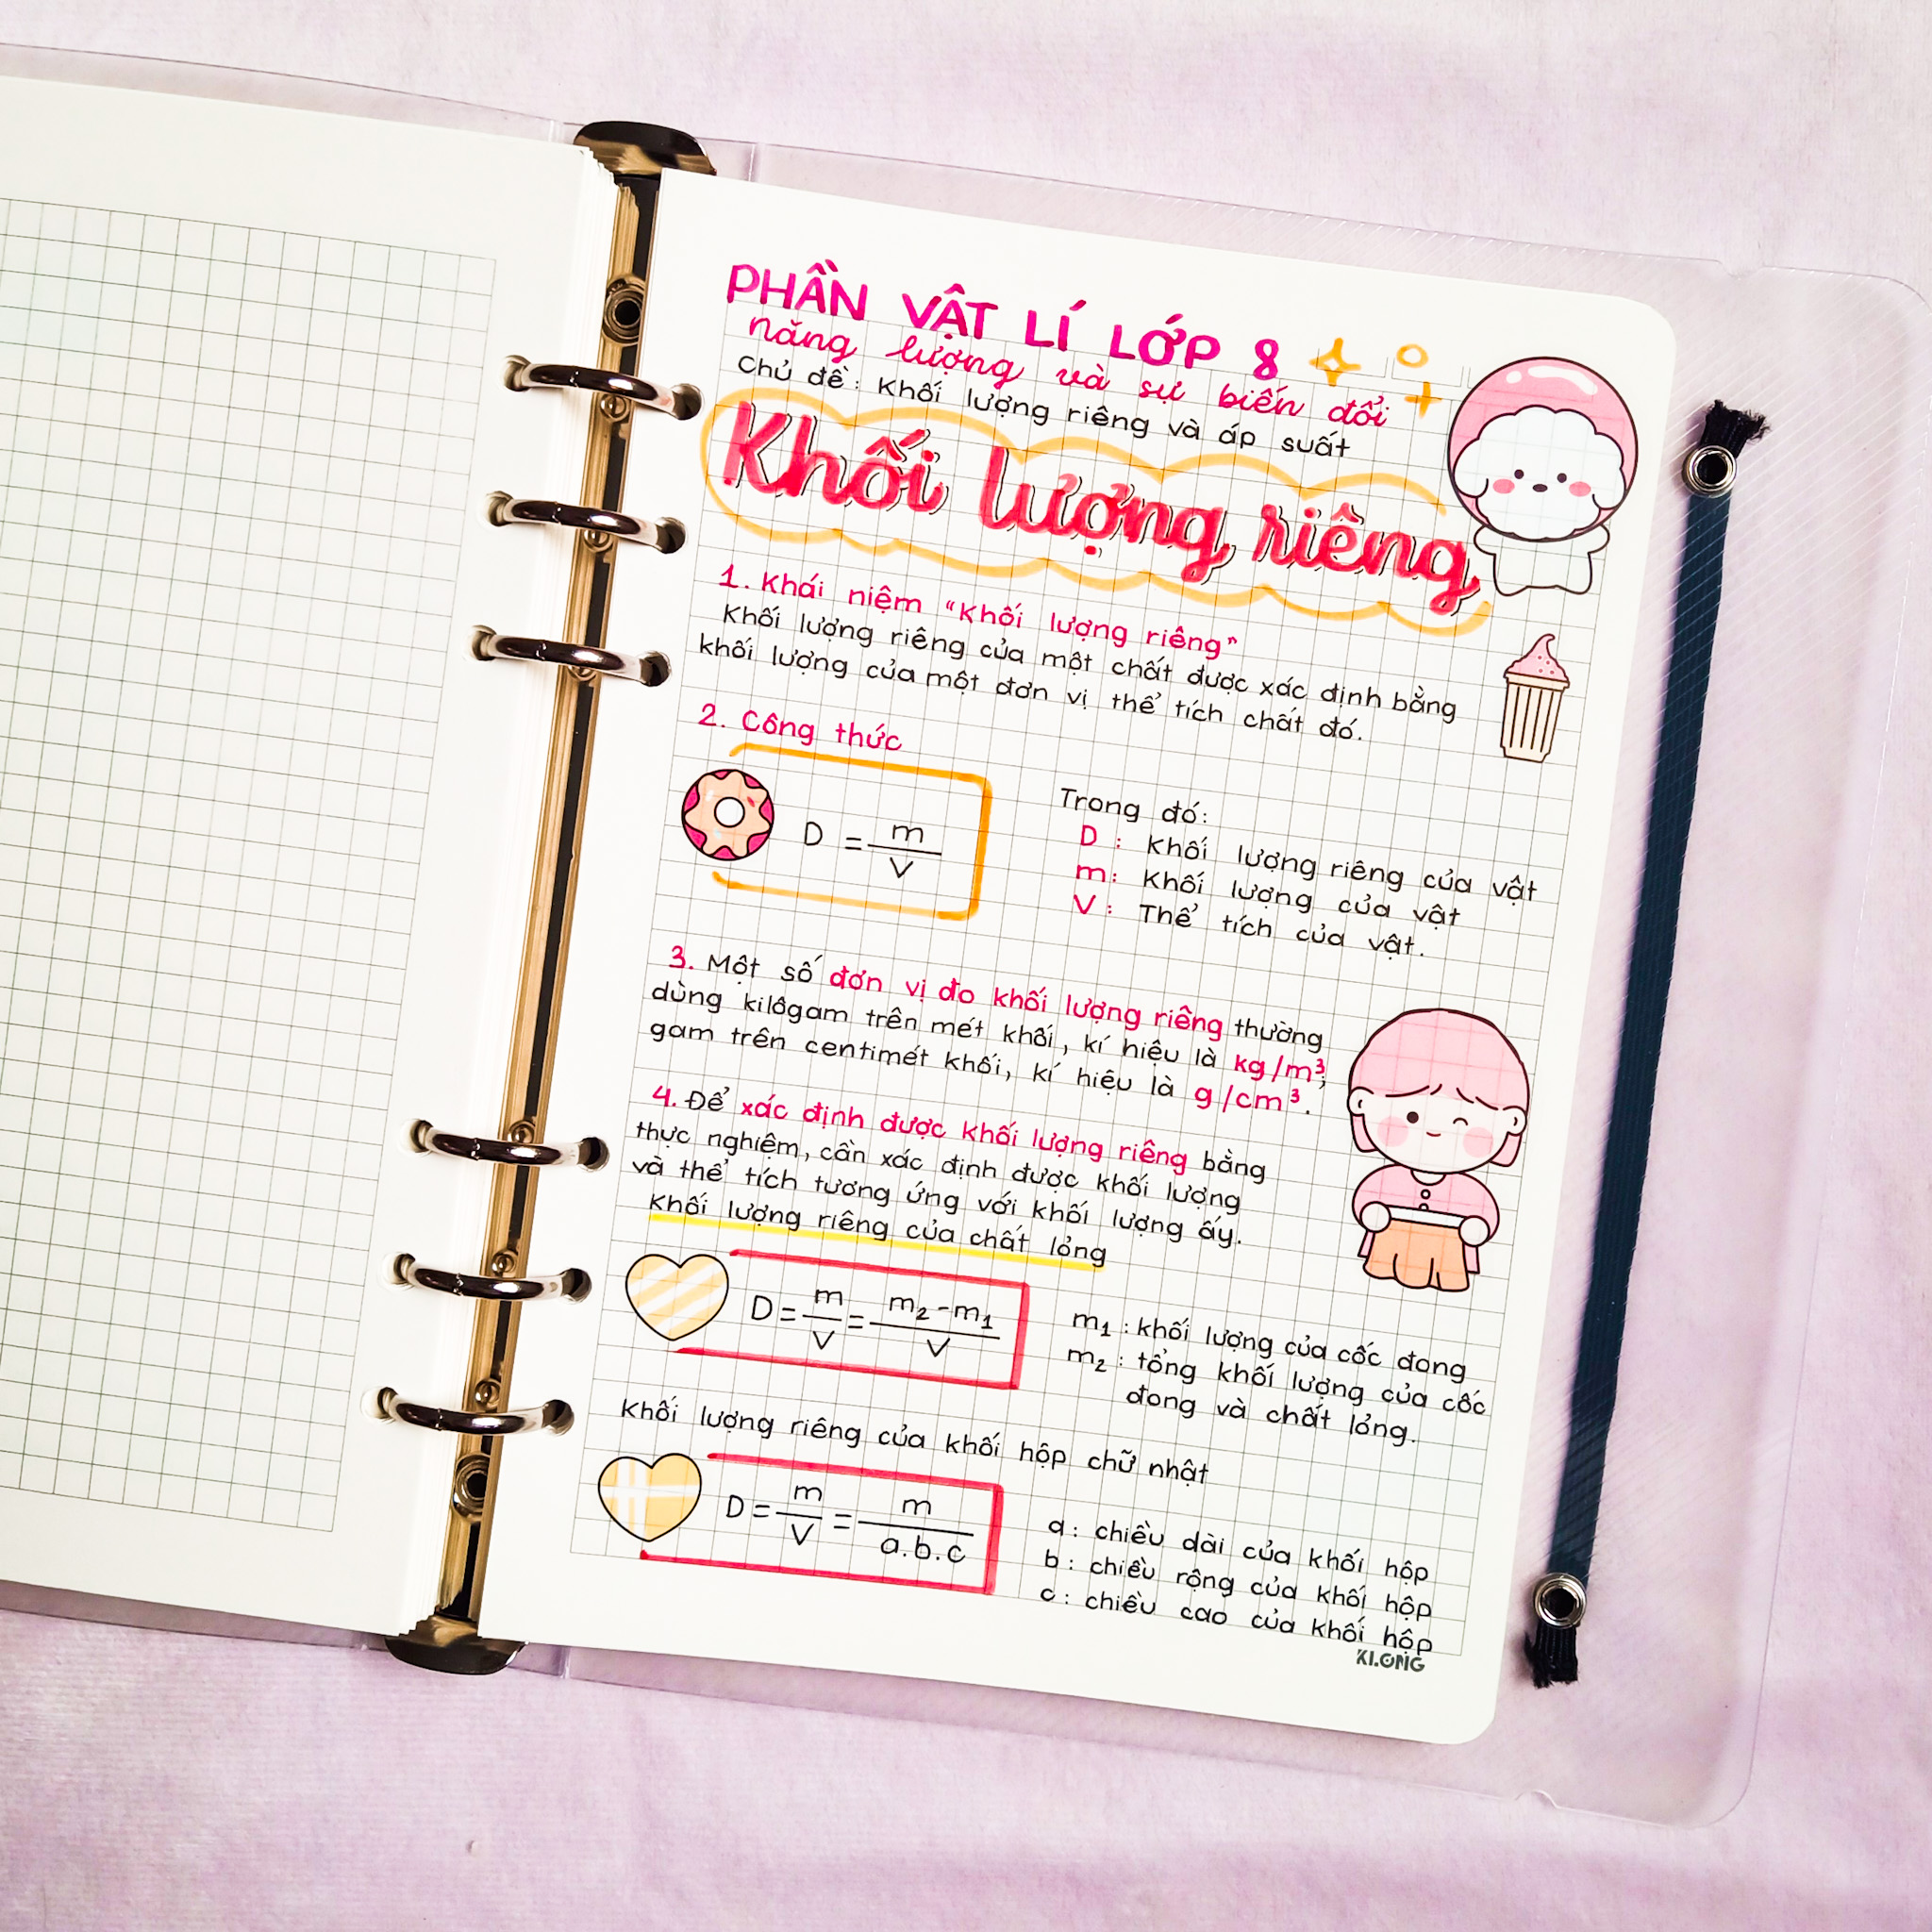 PHẦN VẬT LÍ LỚP 8
năng lượng và sự biến đổi
Chủ đề: Khối lượng riêng và áp suất
Khối lượng riêng
1. Khái niệm "Khối lượng riêng"
Khối lượng riêng của một chất được xác định bằng
khối lượng của một đơn vị thể tích chất đó.
2. Công thức
D = m/V
Trong đó:
D: Khối lượng riêng của vật
m: Khối lượng của vật
V: Thể tích của vật.
3. Một số đơn vị đo khối lượng riêng thường
dùng kilôgam trên mét khối, kí hiệu là kg/m³;
gam trên centimét khối, kí hiệu là g/cm³.
4. Để xác định được khối lượng riêng bằng
thực nghiệm, cần xác định được khối lượng
và thể tích tương ứng với khối lượng ấy.
Khối lượng riêng của chất lỏng
D = m/V = m₂-m₁/V
m₁: khối lượng của cốc đong
m₂: tổng khối lượng của cốc
đong và chất lỏng.
Khối lượng riêng của khối hộp chữ nhật
D = m/V = m/a.b.c
a: chiều dài của khối hộp
b: chiều rộng của khối hộp
c: chiều cao của khối hộp
KI.ONG